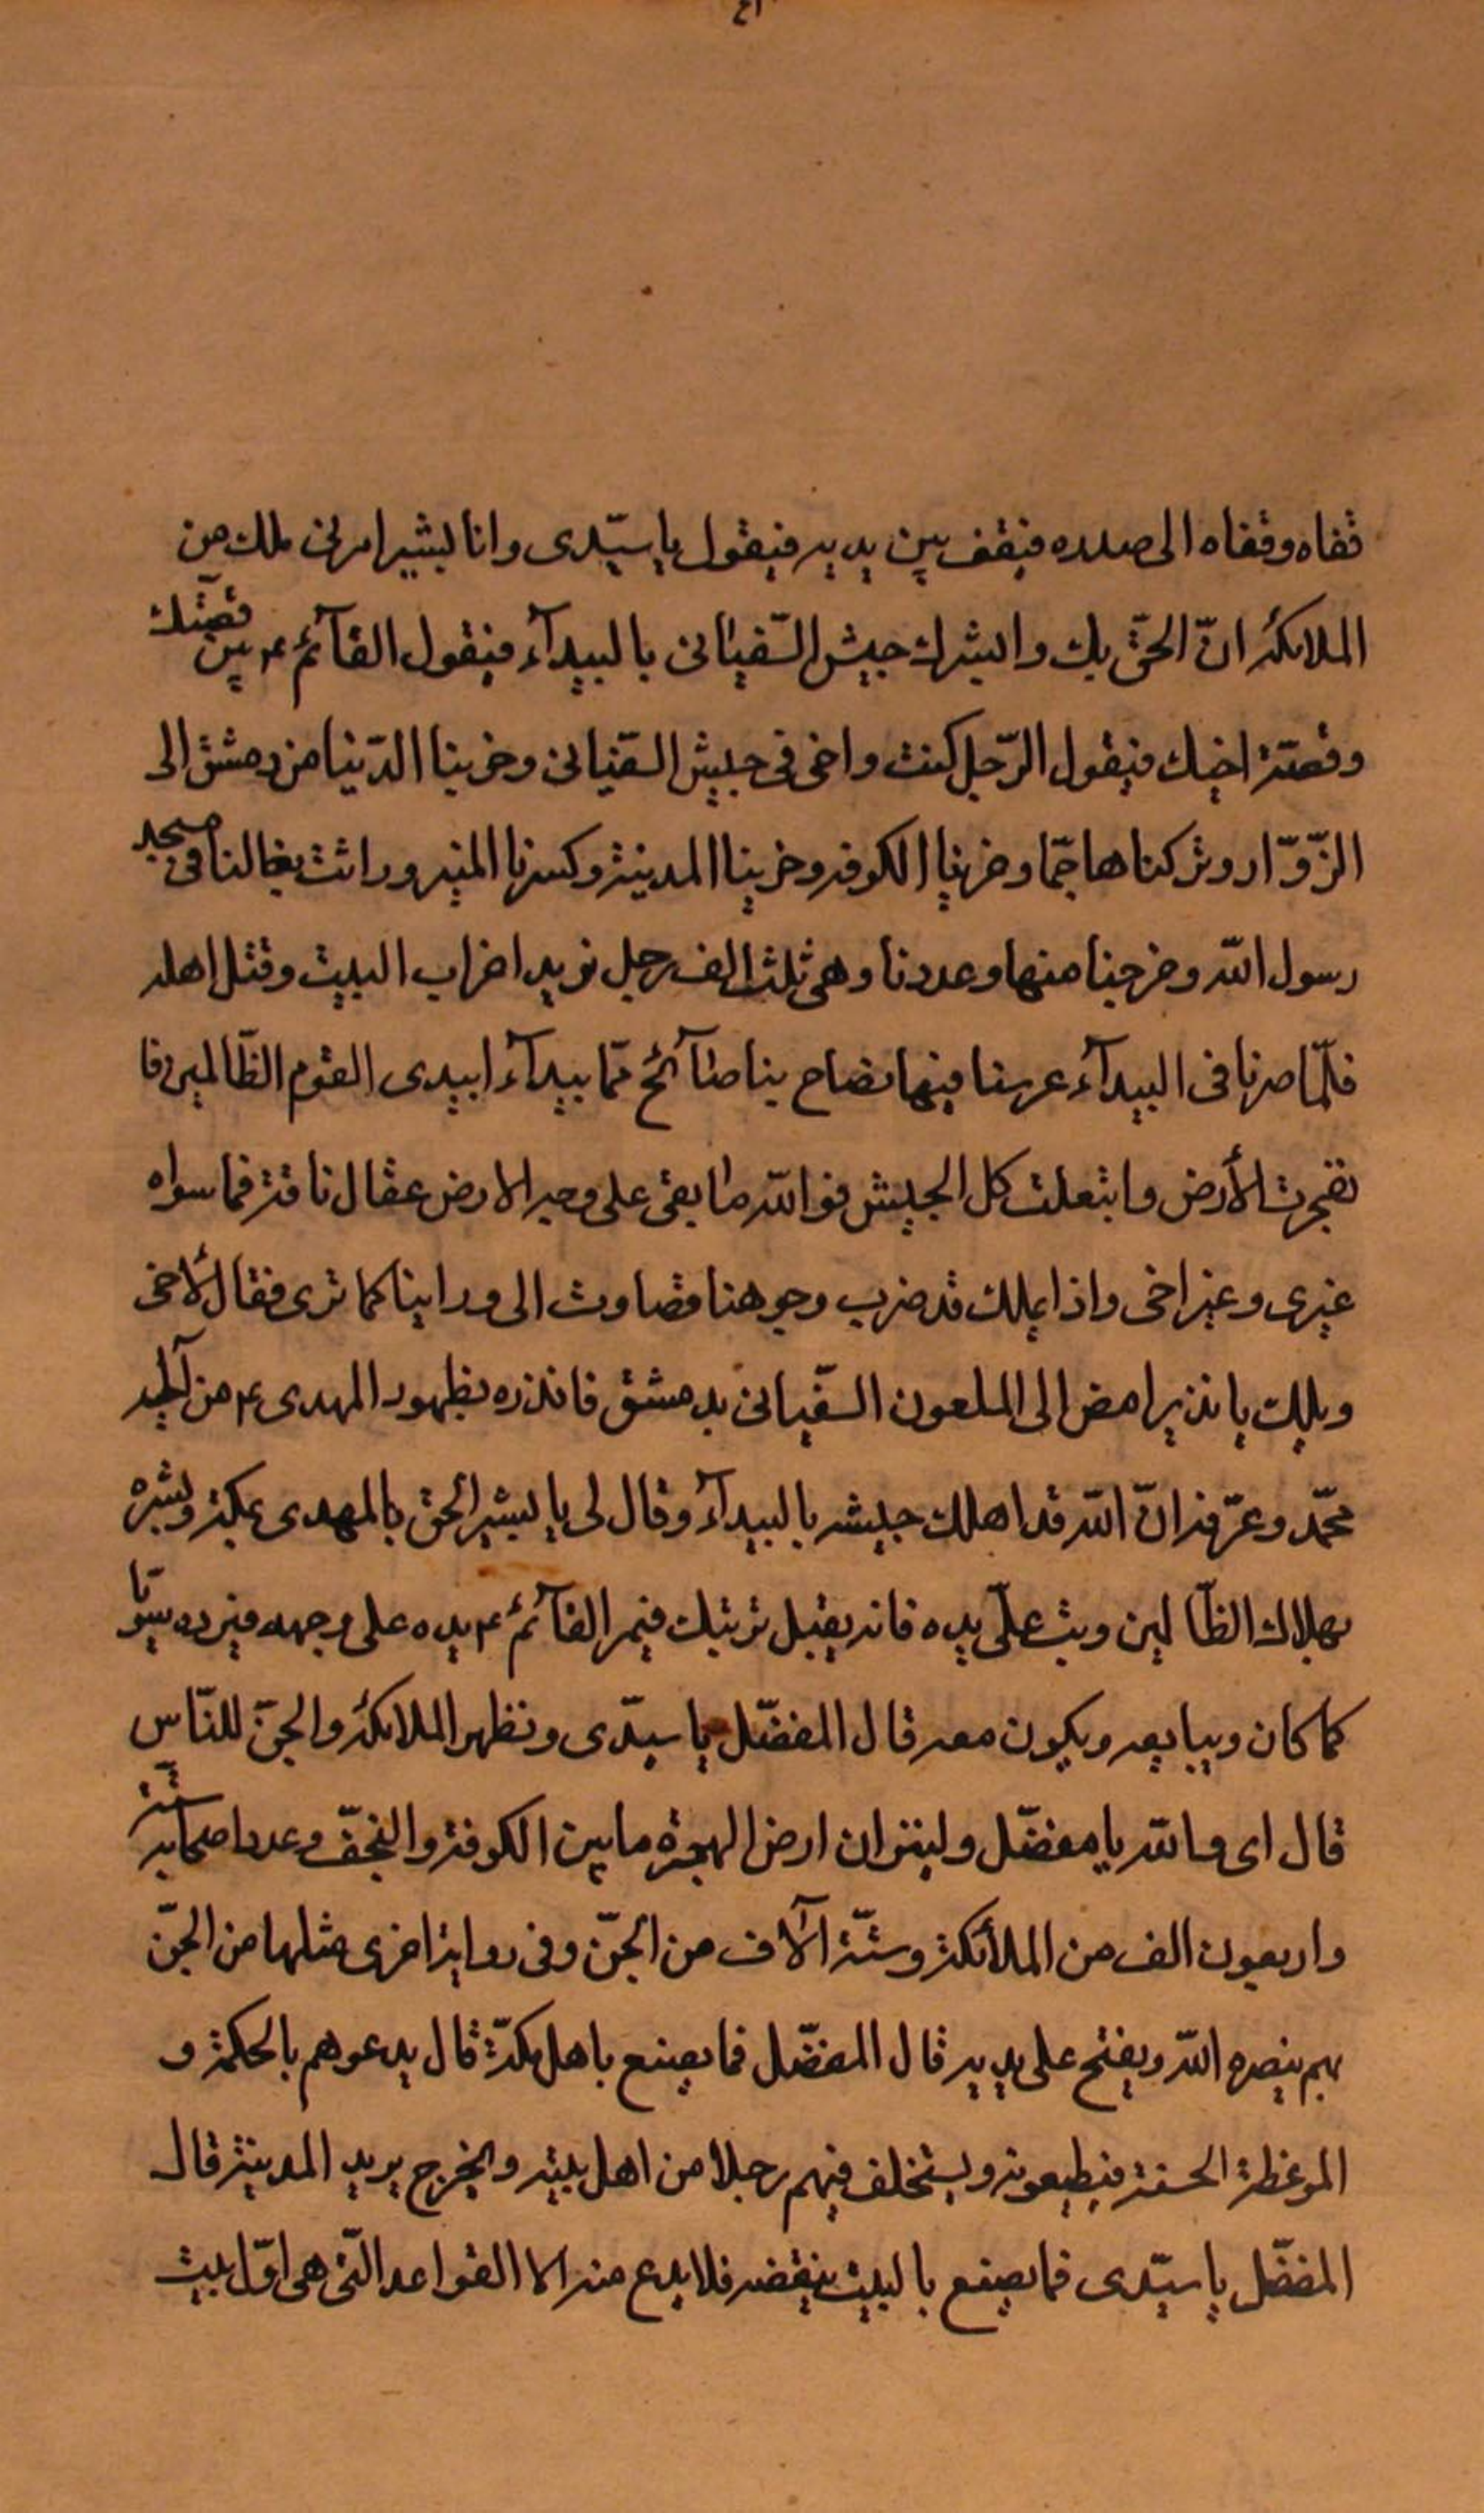 قفاه وقفاه الى صدره فيقف بين يديه فيقول يا سيّدى وانا بشير امرنى ملك من
الملائكة انّ الحقّ بك وابشرك جيش السّفيانى بالبيدآء فيقول القآئم ع بين قصّتك
وقصّة اخيك فيقول الرّجل كنت واخى فى جيش السّفيانى وخربنا الدّنيا من دمشق الى
الزّوّار وتركناها جمّا وخربنا الكوفه وخربنا المدينة وكسرنا المنبر وراثت بغالنا فى مسجد
رسول اللّه وخرجنا منها وعددنا وهى ثلث الف رجل نريد اخراب البيت وقتل اهله
فلمّا صرنا فى البيدآء عرسنا فيها فصاح بنا صآئح يا بيدآء ابيدى القوم الظّالمين فا
نفجرت الأرض وابتعلت كل الجيش فو اللّه ما بقى على وجه الارض عقال ناقة فما سواه
غيرى وغير اخى واذا بملك قد ضرب وجوهنا فصارت الى ورائنا كما ترى فقال لأخى
ويلك يا نذير امض الى الملعون السّفيانى بدمشق فانذره بظهور المهدى ع من آل
محمّد وعرّفه انّ اللّه قد اهلك جيشه بالبيدآء وقال لى يا بشير الحق بالمهدى بمكة وبشره
بهلاك الظّالمين وتب على يده فانه يقبل توبتك فيمر القآئم ع يده على وجهه فيرده سويّا
كما كان ويبايعه ويكون معه قال المفضّل يا سيّدى وتظهر الملائكة والجنّ للنّاس
قال اى واللّه يا مفضّل ولينزلن ارض الهجرة ما بين الكوفة والنّجف وعدد اصحابه ستّة
واربعون الف من الملائكة وستّة آلاف من الجنّ وفى رواية اخرى مثلها من الجنّ
بهم ينصره اللّه ويفتح على يديه قال المفضّل فما يصنع باهل مكّة قال يدعوهم بالحكمة و
الموعظة الحسنة فيطيعونه ويستخلف فيهم رجلا من اهل بيته ويخرج يريد المدينة قال
المفضّل يا سيّدى فما يصنع بالبيت ينقضه فلا يدع منه الا القواعد الّتى هى اوّل بيت